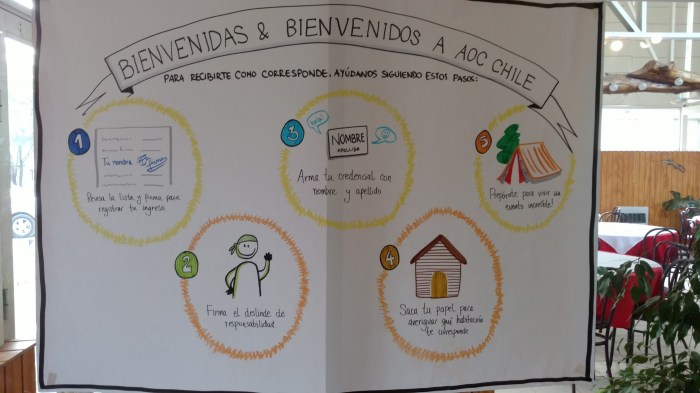 BIENVENIDAS & BIENVENIDOS A AOC CHILE
PARA RECIBIRTE COMO CORRESPONDE, AYÚDANOS SIGUIENDO ESTOS PASOS:
1
Tu nombre
Revisa la lista y firma para
registrar tu ingreso
2
Firma el deslinde de
responsabilidad
3
HOLA!
NOMBRE
APELLIDO
Arma tu credencial con
nombre y apellido
4
Saca tu papel para
averiguar qué habitación
te corresponde
5
Prepárate para vivir un
evento increíble!